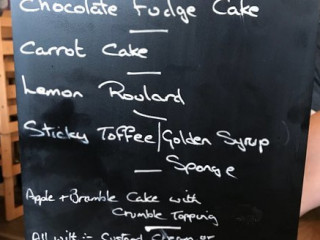 Chocolate Fudge Cake
Carrot Cake
Lemon Roulard
Sticky Toffee/Golden Syrup
Sponge
Apple + Bramble Cake with
Crumble Topping
All with :- Custard Cream or